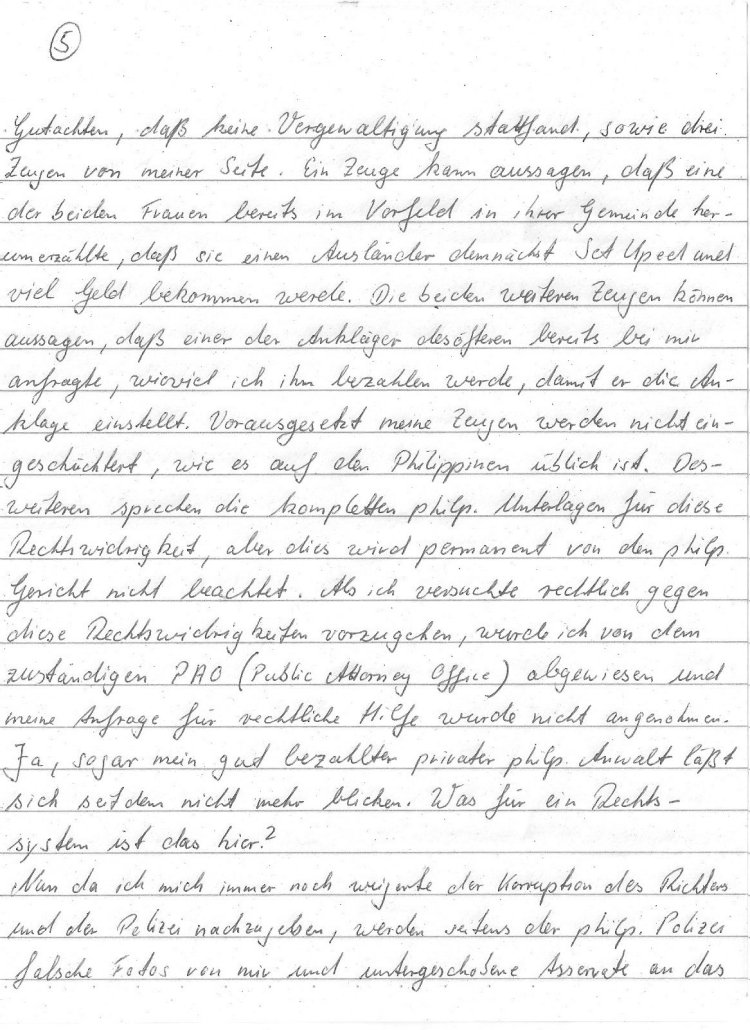 5
Gutachten, daß keine Vergewaltigung stattfand, sowie drei
Zeugen von meiner Seite. Ein Zeuge kann aussagen, daß eine
der beiden Frauen bereits im Vorfeld in ihrer Gemeinde her-
umerzählte, daß sie einen Ausländer demnächst Set Uped und
viel Geld bekommen werde. Die beiden weiteren Zeugen können
aussagen, daß einer der Ankläger desöfteren bereits bei mir
anfragte, wieviel ich ihm bezahlen werde, damit er die An-
klage einstellt. Vorausgesetzt meine Zeugen werden nicht ein-
geschüchtert, wie es auf den Philippinen üblich ist. Des-
weiteren sprechen die kompletten philp. Unterlagen für diese
Rechtswidrigkeit, aber dies wird permanent von den philp.
Gericht nicht beachtet. Als ich versuchte rechtlich gegen
diese Rechtswidrigkeiten vorzugehen, wurde ich von dem
zuständigen PAO (Public Attorney Office) abgewiesen und
meine Anfrage für rechtliche Hilfe wurde nicht angenohmen.
Ja, sogar mein gut bezahlter privater philp. Anwalt läßt
sich seitdem nicht mehr blicken. Was für ein Rechts-
system ist das hier?
Nun da ich mich immer noch weigerte der Korruption des Richters
und der Polizei nachzugeben, werden seitens der philp. Polizei
falsche Fotos von mir und untergeschobene Asservate an das